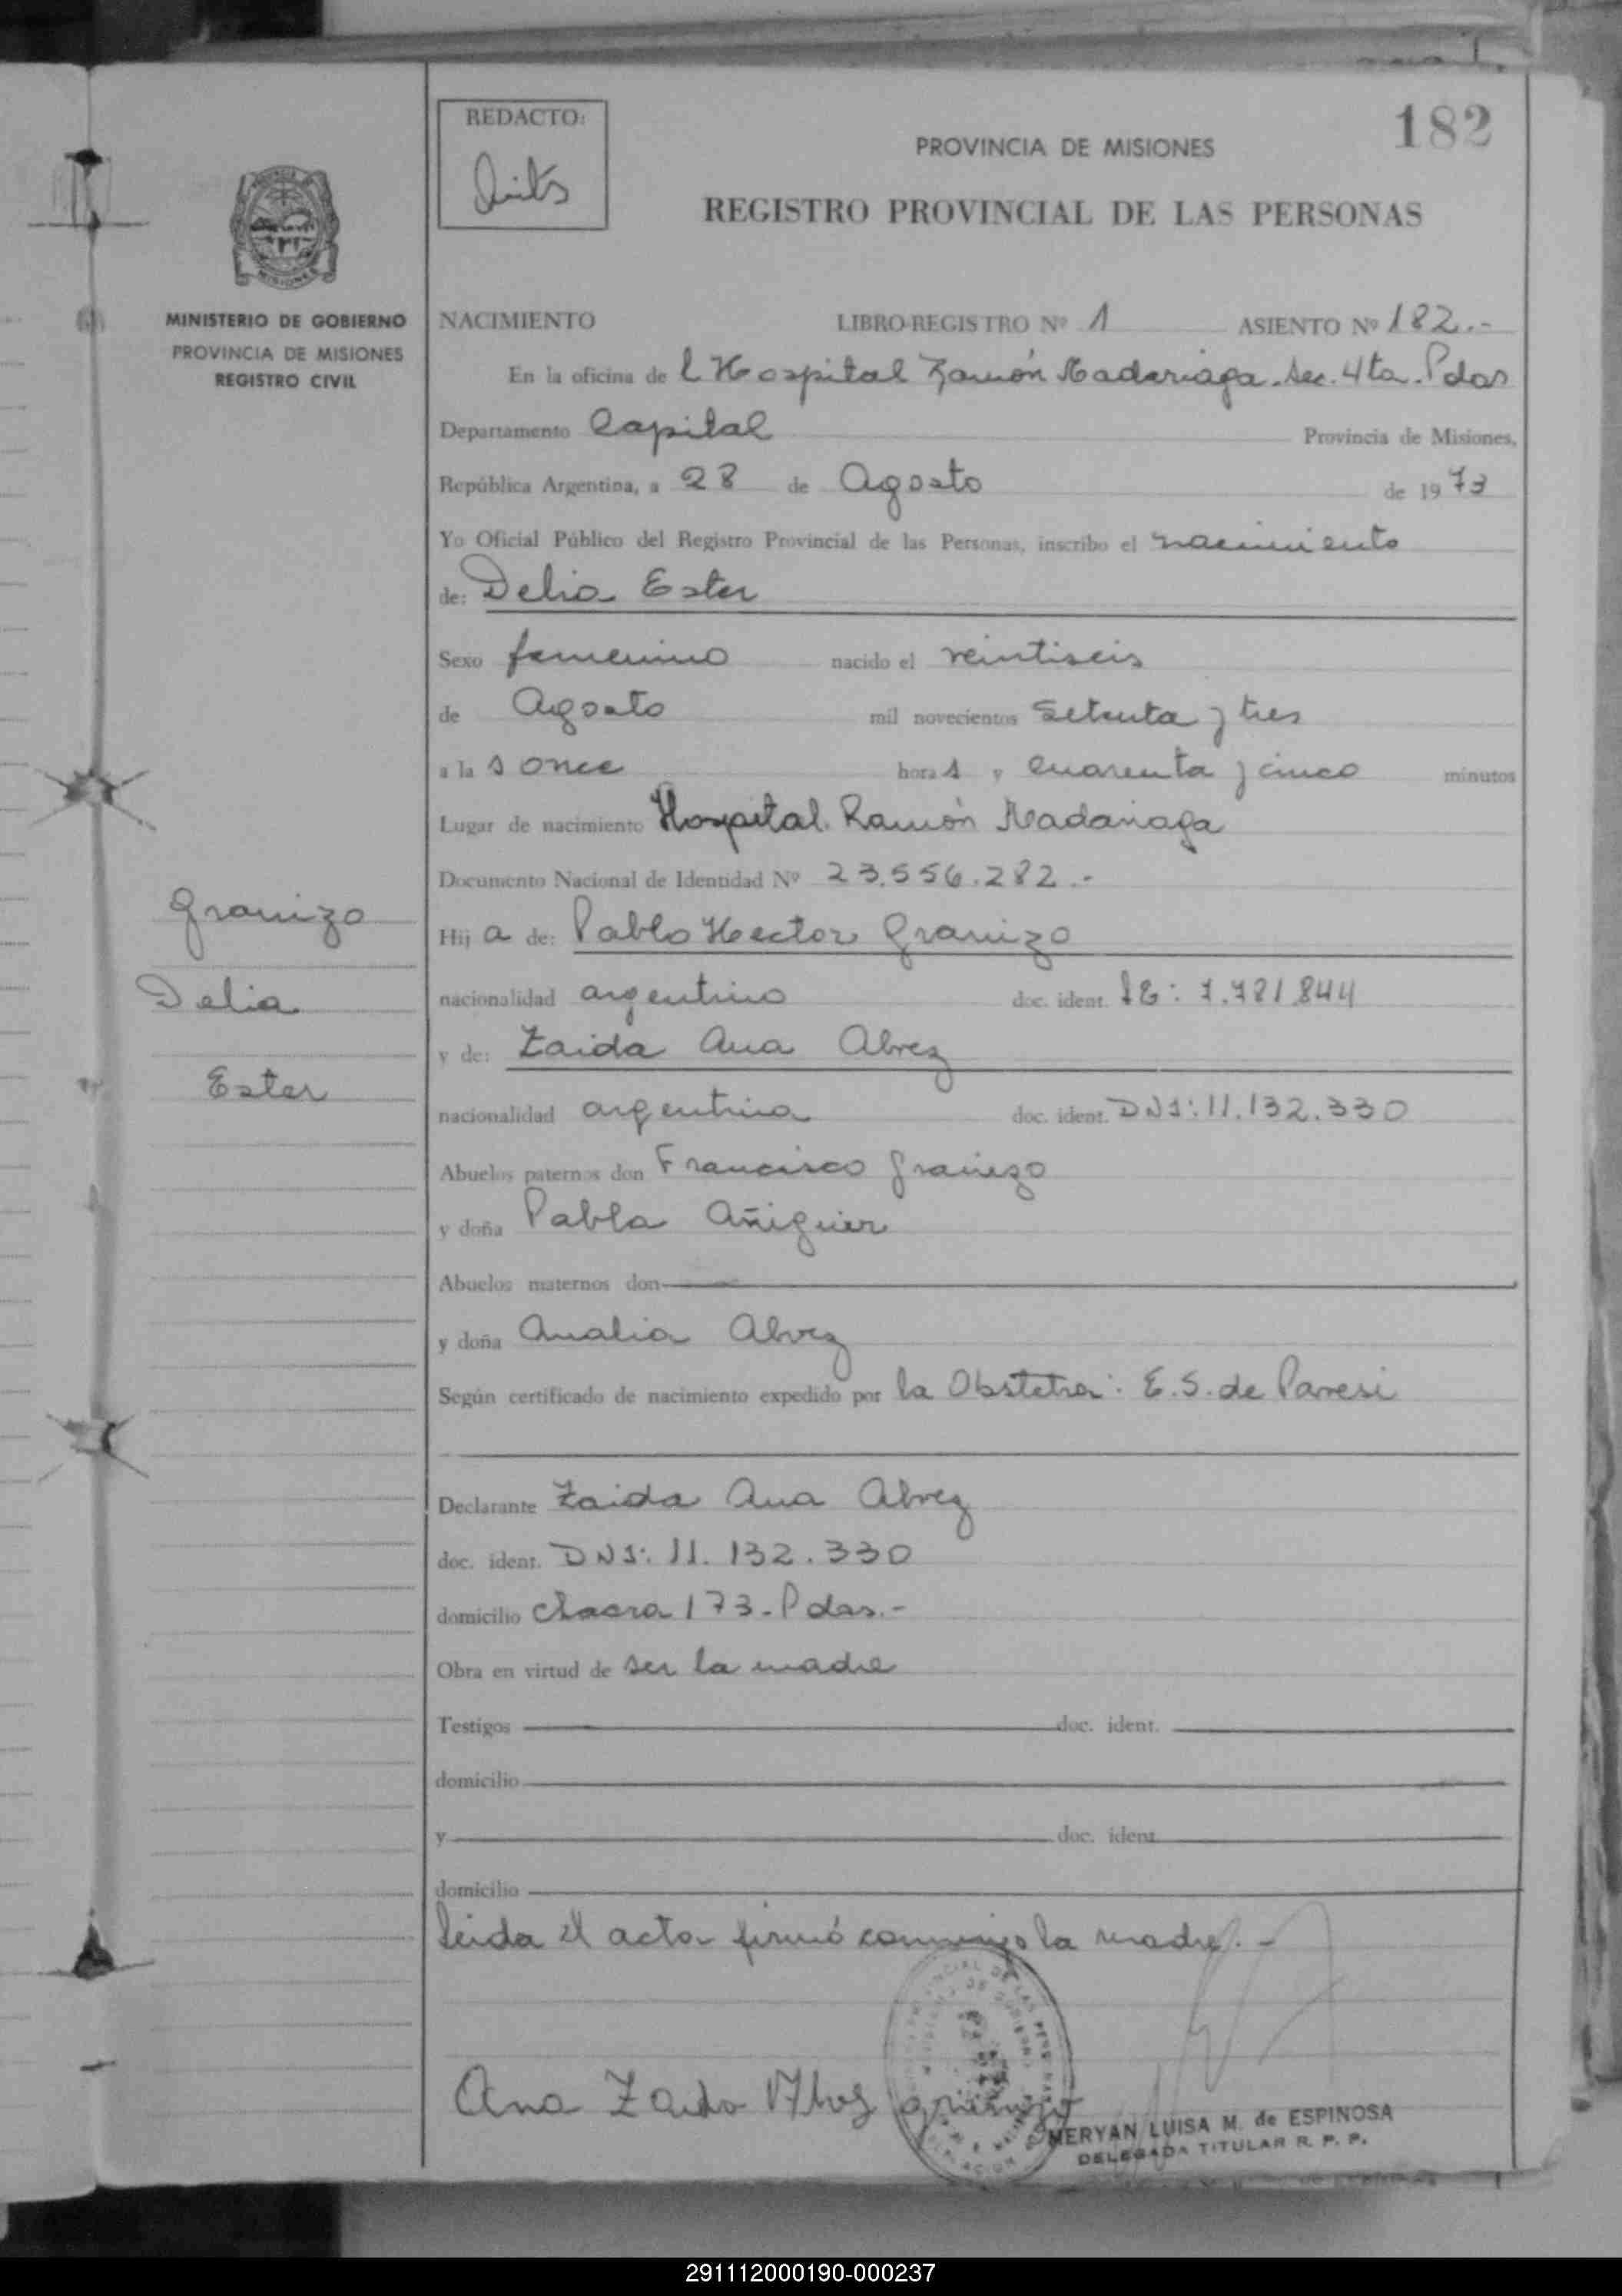 182
REDACTO:
PROVINCIA DE MISIONES
REGISTRO PROVINCIAL DE LAS PERSONAS
MISIONES
MINISTERIO DE GOBIERNO
PROVINCIA DE MISIONES
REGISTRO CIVIL
Granizo
Delia
Ester
NACIMIENTO LIBRO-REGISTRO Nº 1 ASIENTO Nº 182.-
En la oficina de l Hospital Ramón Madariaga. Sec. 4ta. Pdas
Departamento Capital Provincia de Misiones,
República Argentina, a 28 de Agosto de 1973
Yo Oficial Público del Registro Provincial de las Personas, inscribo el nacimiento
de: Delia Ester
Sexo femenino nacido el veintiseis
de Agosto mil novecientos setenta y tres
a la s once hora s y cuarenta y cinco minutos
Lugar de nacimiento Hospital Ramón Madariaga
Documento Nacional de Identidad Nº 23.556.282.-
Hij a de: Pablo Hector Granizo
nacionalidad argentino doc. ident. 7.781.844
y de: Zaida Ana Alvez
nacionalidad argentina doc. ident. DNI: 11.132.330
Abuelos paternos don Francisco Granizo
y doña Pabla Añiguier
Abuelos maternos don
y doña Analia Alvez
Según certificado de nacimiento expedido por la Obstetra: E. S. de Parresi
Declarante Zaida Ana Alvez
doc. ident. DNI: 11.132.330
domicilio chacra 173 - Pdas.-
Obra en virtud de ser la madre
Testigos doc. ident.
domicilio
y doc. ident.
domicilio
Leida el acta firmó conmigo la madre.-
Ana Zaida
MERYAN LUISA M. de ESPINOSA
DELEGADA TITULAR R. P. P.
291112000190-000237